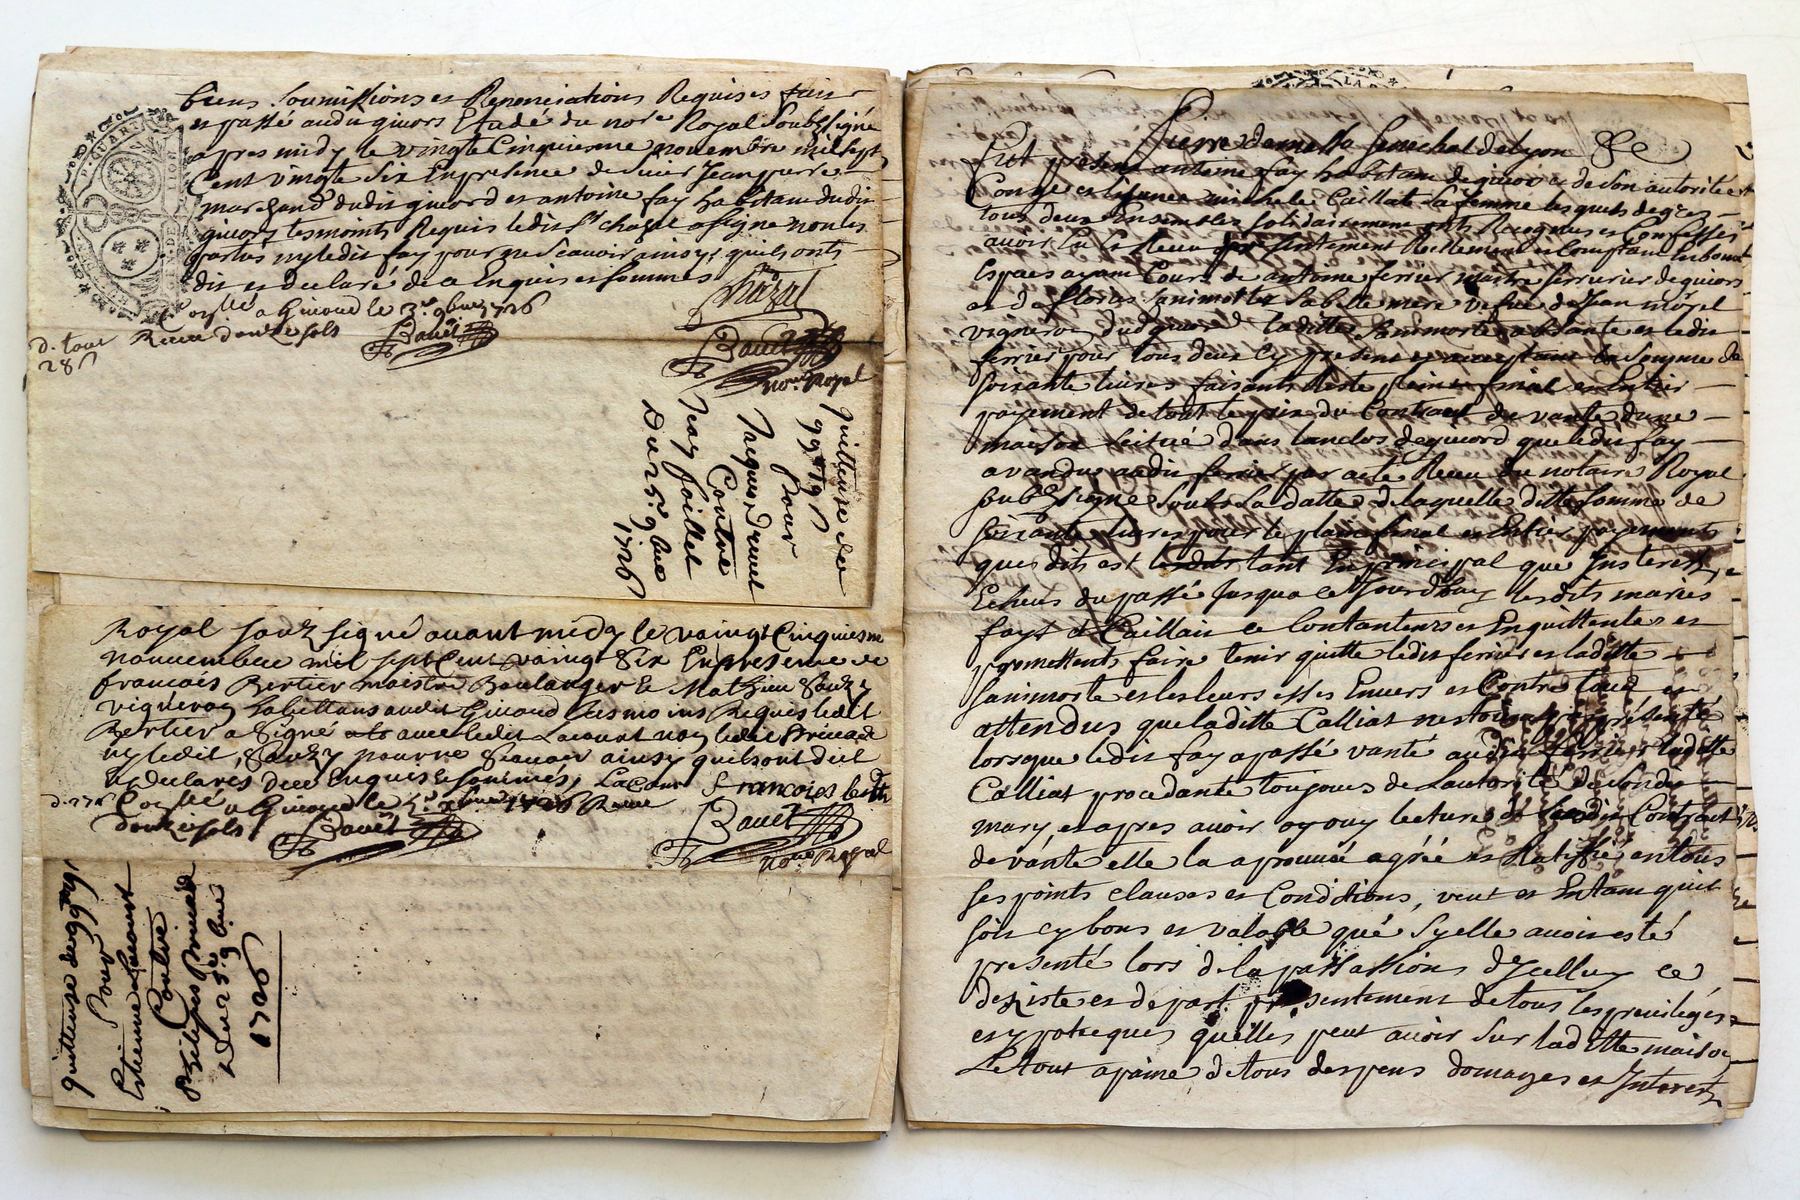 biens soumissions et Renonciations Requises fait
et passé audit givors Etude du nore Royal Soubzsigné
apres midy le vingt Cinquieme novembre mil sept
Cent vingte Six En presence de sieur Jean pierre
marchand dudit givord et antoine fay habitans dudit
givors tesmoints Requis ledit sr chazal a signe non les
parties ny ledit fay pour ne scavoir ainsy quils onts
dit et declaré de ce Enquis et sommes
Chazal
Collé a Givord le 3e xbre 1726
Receu douze sols
Bauet
d. tour
28 s
Bauet
nore Royal
quittense de
99# 19 s
Pour
Jaques druuel
Contre
Jean faillet
Du 25e 9bre
1726
Royal soubz signé auant midy le vaingt Cinquiesme
nouuembre mil sept Cent vaingt Six En presence de
francois Bertier maistre Boulanger & Mathieu Sauzy
vigneron habittans audit Givord tesmoins Requis ledit
Bertier a Signé auec ledit Lacourt non ledit Priuade
ny ledit Sauzy pour ne Scauoir ainsy quils ont dict
& declares de ce Enquis & sommes, Lacour francois bertie
Collé a Givord le xbre 1726 Receu
douze sols
Bauet
Bauet
nore Royal
quittense de 99#
Pour
Estienne Lacourt
Contre
Phelipes Priuade
Du 25e 9bre
1726
Senechal de lyon &c
fut present antoine fay habitant de givors et de son autorité
Conge et licence michele Caillate sa femme lesquels de grez
tous deux Ensembles solidairement onts Recognus et Confessés
avoir Eu et Receu presentement Reellement et Comptant En bonnes
Espaes ayant Cours de antoine ferrier maitre serrurier de givors
et de florie sanimorte sa belle mere vefue de Jean morel
vigneron dudit givord laditte sanimorte absante et ledit
ferrier pour tous deux Cy present et acceptant la somme de
soixante livres faisants Reste pleine final et Entier
payement de tout le prix du Contract de vante dune
maison scitué dans lanclos de givord que ledit fay
a vandue audit ferrier par acte Receu du notaire Royal
soubzsigne soubz sa datte de laquelle ditte somme de
soixante livres pour le plain final et Entier payements
que dits est tant En principal que Jnterets
Echeus du passé Jusqua ce Jourdhuy lesdits maries
fays et Caillat ce Contantens et En quittentes et
promettents faire tenir quitte ledit ferrier et laditte
sanimorte et les leurs Enuers et Contre tous, et
attendus que laditte Calliat nestoit presenté
lorsque ledit fay a passé vante audit ferrier laditte
Calliat procedante toujours de Lautorité de sondit
mary et apres auoir oy lecture dudit Contract
de vante elle la aprouué agréé et Ratiffié en tous
ses points clauses et Conditions, veut et Entant quil
soit cy bons et valable que sy elle auoit esté
presenté lors de la passassions dycelluy ce
deziste et depart presentement de tous les preuileges
et ypotheques quelles peut auoir sur laditte maison
Le tout a paine de tous despens domages et Jnterets